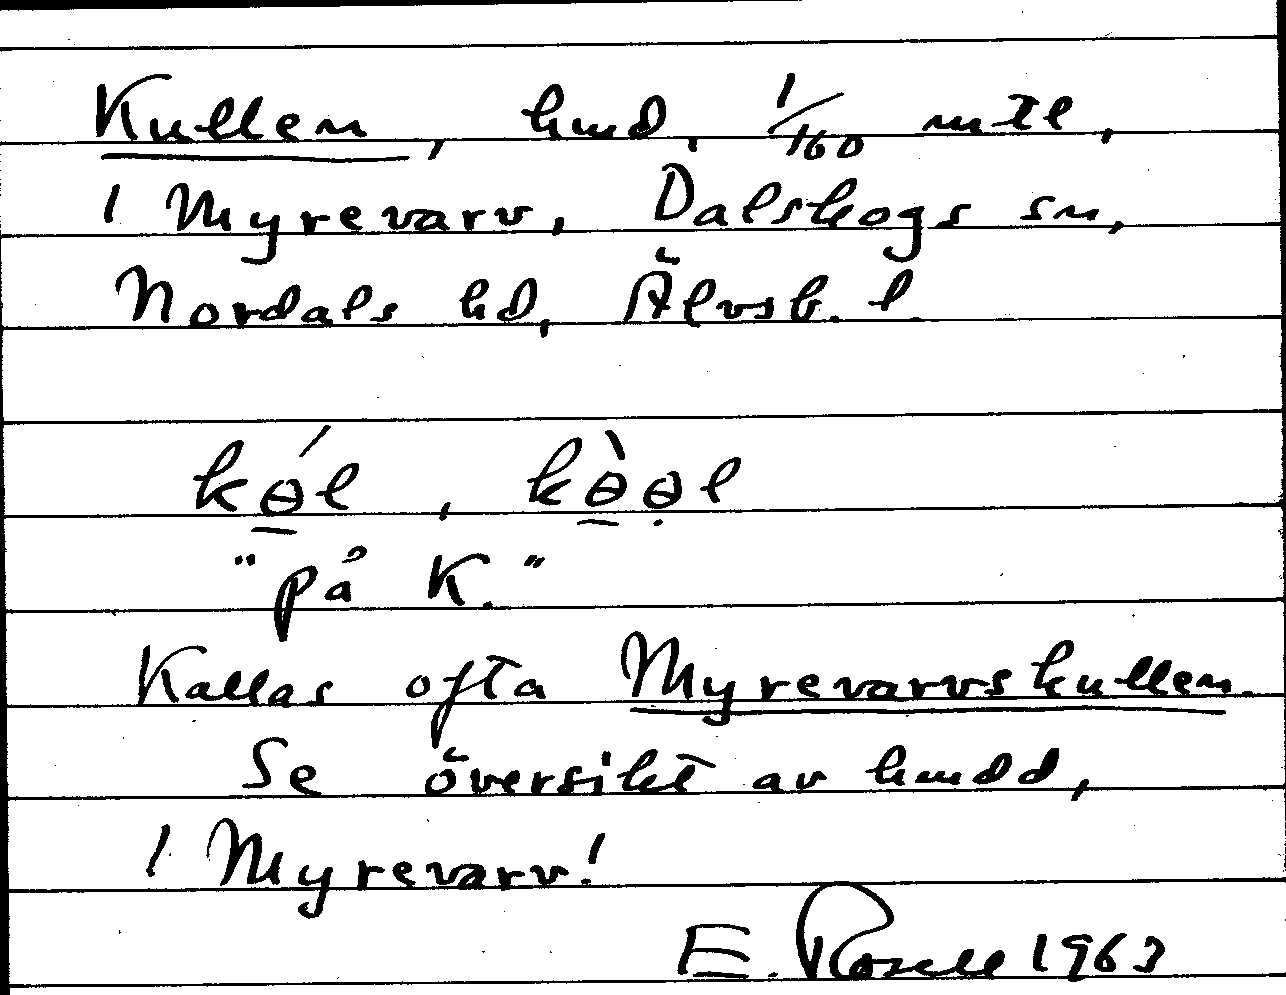 Kullen, hmd, 1/160 mtl,
i Myrevarv, Dalskogs sn,
Nordals hd, Älvsb. l.
kɵ̲́l, kɵ̲̀ɵ̣l
"på K."
Kallas ofta Myrevarvskullen.
Se översikt av hmdd,
i Myrevarv!
E. Rosell 1963